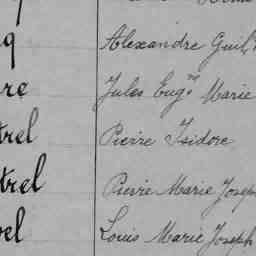 Alexandre Guil
re Jules Eug.ne Marie
trel Pierre Isidore
trel Pierre Marie Josep
el Louis Marie Joseph